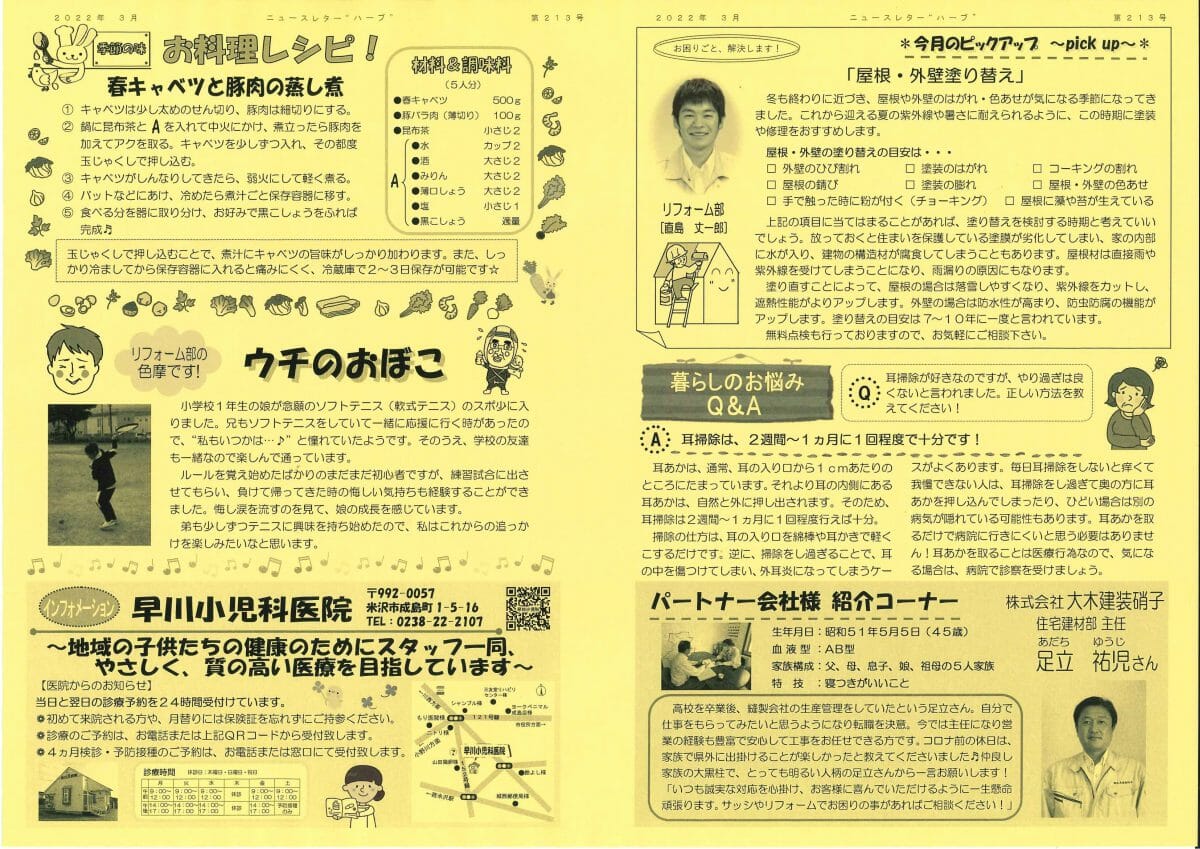 2022年 3月
ニュースレター“ハーブ”
第213号
季節の味
お料理レシピ！
春キャベツと豚肉の蒸し煮
① キャベツは少し太めのせん切り、豚肉は細切りにする。
② 鍋に昆布茶と A を入れて中火にかけ、煮立ったら豚肉を
加えてアクを取る。キャベツを少しずつ入れ、その都度
玉じゃくしで押し込む。
③ キャベツがしんなりしてきたら、弱火にして軽く煮る。
④ バットなどにあけ、冷めたら煮汁ごと保存容器に移す。
⑤ 食べる分を器に取り分け、お好みで黒こしょうをふれば
完成♫
材料＆調味料
（5人分）
●春キャベツ 500g
●豚バラ肉（薄切り） 100g
●昆布茶 小さじ2
A
●水 カップ2
●酒 大さじ2
●みりん 大さじ2
●薄口しょう 大さじ2
●塩 小さじ1
●黒こしょう 適量
玉じゃくしで押し込むことで、煮汁にキャベツの旨味がしっかり加わります。また、しっ
かり冷ましてから保存容器に入れると痛みにくく、冷蔵庫で2～3日保存が可能です☆
リフォーム部の
色摩です!
ウチのおぼこ
小学校1年生の娘が念願のソフトテニス（軟式テニス）のスポ少に入
りました。兄もソフトテニスをしていて一緒に応援に行く時があったの
で、“私もいつかは…♪”と憧れていたようです。そのうえ、学校の友達
も一緒なので楽しんで通っています。
ルールを覚え始めたばかりのまだまだ初心者ですが、練習試合に出さ
せてもらい、負けて帰ってきた時の悔しい気持ちも経験することができ
ました。悔し涙を流すのを見て、娘の成長を感じています。
弟も少しずつテニスに興味を持ち始めたので、私はこれからの追っか
けを楽しみたいなと思います。
インフォメーション
早川小児科医院
〒992-0057
米沢市成島町1-5-16
TEL：0238-22-2107
～地域の子供たちの健康のためにスタッフ一同、
やさしく、質の高い医療を目指しています～
【医院からのお知らせ】
当日と翌日の診療予約を24時間受付けています。
初めて来院される方や、月替りには保険証を忘れずにご持参ください。
診療のご予約は、お電話または上記QRコードから受付致します。
4ヵ月検診・予防接種のご予約は、お電話または窓口にて受付致します。
診療時間 休診日：木曜日・日曜日・祝日
月 火 水 木 金 土
午前 9:00～12:00 9:00～12:00 9:00～12:00 休診 9:00～12:00 9:00～12:00
午後 14:00～17:00 14:00～17:00 14:00～17:00 休診 14:00～17:00
シャンブル様
ヨークベニマル
成島店様
もり医院様
121号線
市役所方面→
ニトリ様
小野川方面
早川小児科医院
山田鶏卵様
西米沢駅
館山よし様
城西郵便局様
2022年 3月
ニュースレター“ハーブ”
第213号
お困りごと、解決します！
＊今月のピックアップ ～pick up～＊
「屋根・外壁塗り替え」
冬も終わりに近づき、屋根や外壁のはがれ・色あせが気になる季節になってき
ました。これから迎える夏の紫外線や暑さに耐えられるように、この時期に塗装
や修理をおすすめします。
屋根・外壁の塗り替えの目安は・・・
□ 外壁のひび割れ □ 塗装のはがれ □ コーキングの割れ
□ 屋根の錆び □ 塗装の膨れ □ 屋根・外壁の色あせ
□ 手で触った時に粉が付く（チョーキング） □ 屋根に藻や苔が生えている
リフォーム部
[直島 丈一郎]
上記の項目に当てはまることがあれば、塗り替えを検討する時期と考えていい
でしょう。放っておくと住まいを保護している塗膜が劣化してしまい、家の内部
に水が入り、建物の構造材が腐食してしまうこともあります。屋根材は直接雨や
紫外線を受けてしまうことになり、雨漏りの原因にもなります。
塗り直すことによって、屋根の場合は落雪しやすくなり、紫外線をカットし、
遮熱性能がよりアップします。外壁の場合は防水性が高まり、防虫防腐の機能が
アップします。塗り替えの目安は7～10年に一度と言われています。
無料点検も行っておりますので、お気軽にご相談下さい。
暮らしのお悩み
Q＆A
Q
耳掃除が好きなのですが、やり過ぎは良
くないと言われました。正しい方法を教
えてください！
A
耳掃除は、2週間～1ヵ月に1回程度で十分です！
耳あかは、通常、耳の入り口から1cmあたりの
ところにたまっています。それより耳の内側にある
耳あかは、自然と外に押し出されます。そのため、
耳掃除は2週間～1ヵ月に1回程度行えば十分。
掃除の仕方は、耳の入り口を綿棒や耳かきで軽く
こするだけです。逆に、掃除をし過ぎることで、耳
の中を傷つけてしまい、外耳炎になってしまうケー
スがよくあります。毎日耳掃除をしないと痒くて
我慢できない人は、耳掃除をし過ぎて奥の方に耳
あかを押し込んでしまったり、ひどい場合は別の
病気が隠れている可能性もあります。耳あかを取
るだけで病院に行きにくいと思う必要はありませ
ん！耳あかを取ることは医療行為なので、気にな
る場合は、病院で診察を受けましょう。
パートナー会社様 紹介コーナー
株式会社 大木建装硝子
住宅建材部 主任
あだち ゆうじ
足立 祐児さん
生年月日：昭和51年5月5日（45歳）
血液型：AB型
家族構成：父、母、息子、娘、祖母の5人家族
特技：寝つきがいいこと
高校を卒業後、縫製会社の生産管理をしていたという足立さん。自分で
仕事をもらってみたいと思うようになり転職を決意。今では主任になり営業
の経験も豊富で安心して工事をお任せできる方です。コロナ前の休日は、
家族で県外に出掛けることが楽しかったと教えてくださいました♬仲良し
家族の大黒柱で、とっても明るい人柄の足立さんから一言お願いします！
「いつも誠実な対応を心掛け、お客様に喜んでいただけるように一生懸命
頑張ります。サッシやリフォームでお困りの事があればご相談ください！」